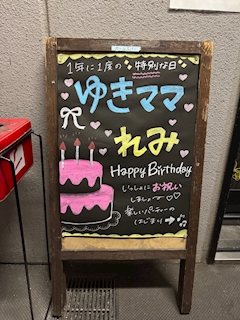 1年に1度の 特別な日
ゆきママ
れみ
Happy Birthday
いっしょにお祝い
しましょー♡♡
楽しいパーティーの
はじまり→♪